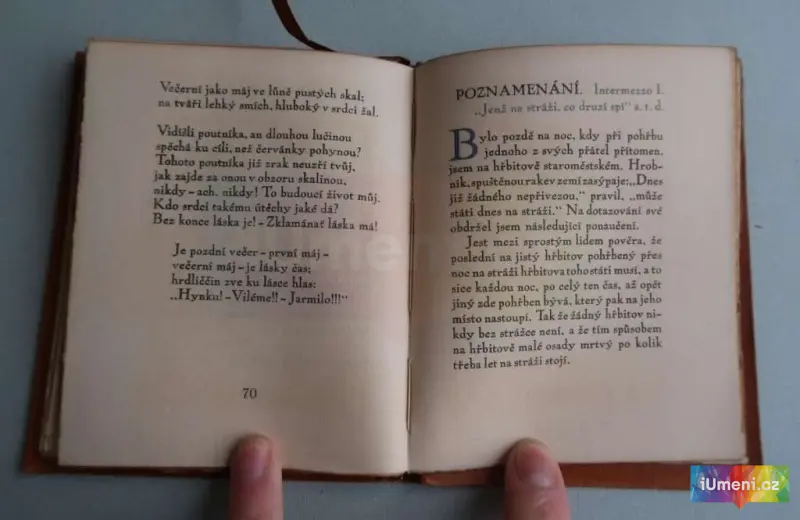 Večerní jako máj ve lůně pustých skal;
na tváři lehký smích, hluboký v srdci žal.
Vidíšli poutníka, an dlouhou lučinou
spěchá ku cíli, než červánky pohynou?
Tohoto poutníka již zrak neuzří tvůj,
jak zajde za onou v obzoru skalinou,
nikdy - ach, nikdy! To budoucí život můj.
Kdo srdci takému útěchy jaké dá?
Bez konce láska je! - Zklamánať láska má!
Je pozdní večer - první máj -
večerní máj - je lásky čas;
hrdliččin zve ku lásce hlas:
„Hynku! - Viléme!! - Jarmilo!!!"
70
POZNAMENÁNÍ. Intermezzo I.
„Jenž na stráži, co druzí spí" a. t. d.
Bylo pozdě na noc, kdy při pohřbu
jednoho z svých přátel přítomen,
jsem na hřbitově staroměstském. Hrob-
ník, spuštěnou rakev zemí zasýpaje: „Dnes
již žádného nepřivezou," pravil, „může
státi dnes na stráži." Na dotazování své
obdržel jsem následující ponaučení.
Jest mezi sprostým lidem pověra, že
poslední na jistý hřbitov pohřbený přes
noc na stráži hřbitova toho státi musí, a to
sice každou noc, po celý ten čas, až opět
jiný zde pohřben bývá, který pak na jeho
místo nastoupí. Tak že žádný hřbitov ni-
kdy bez strážce není, a že tím způsobem
na hřbitově malé osady mrtvý po kolik
třeba let na stráži stojí.
iUmeni.cz